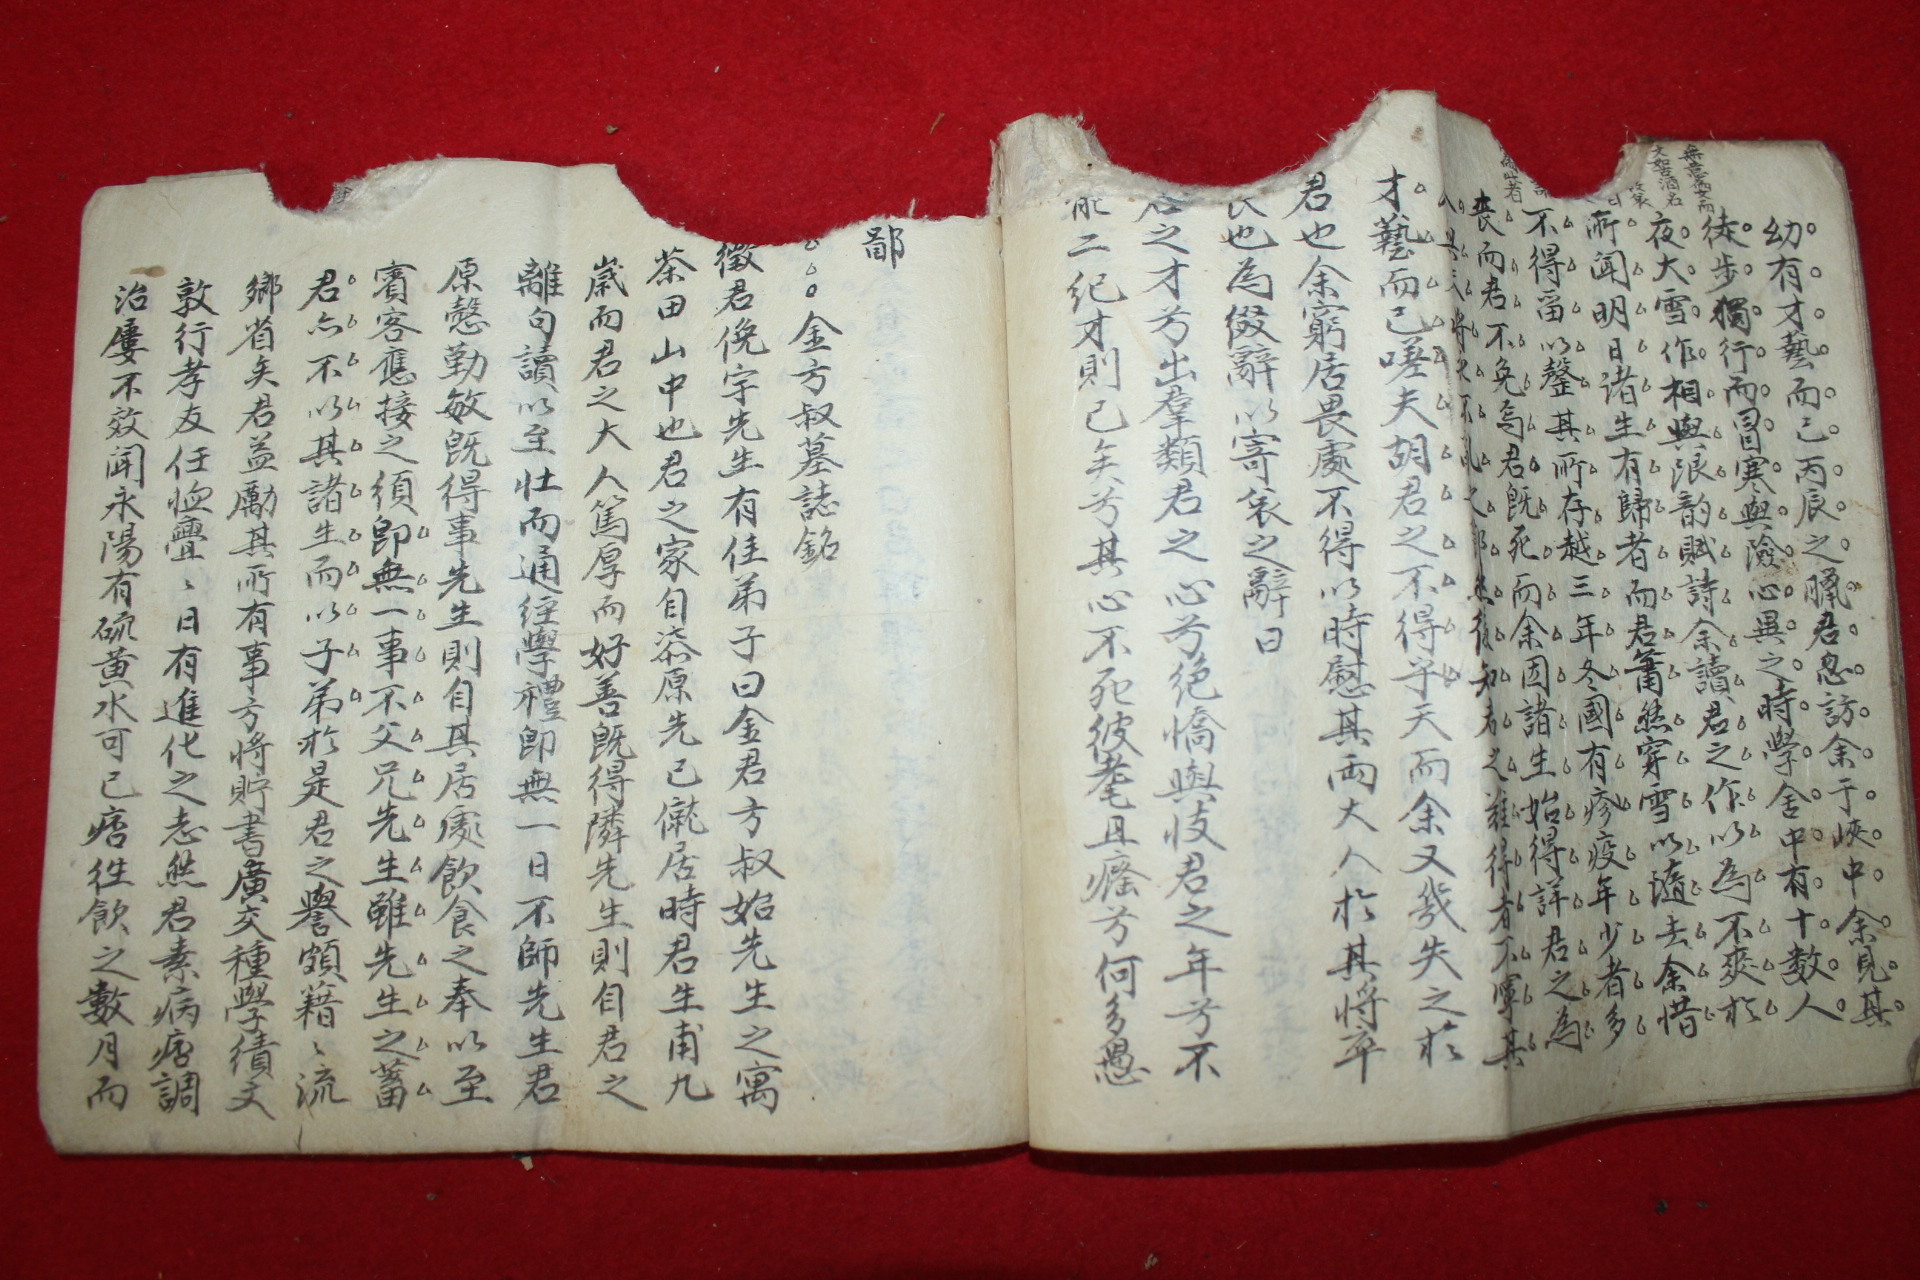 幼有才藝而已丙辰之臘君忽訪余于峽中余見其
徒步獨行而冒寒與險心異之時學舍中有十數人
夜大雪作相與限韵賦詩余讀君之作以為不爽於
所聞明日諸生有歸者而君簫然穿雪以隨去余惜
不得畱以罄其所存越三年冬國有疹疫年少者多
喪而君不免焉君旣死而余因諸生始得詳君之為
後知者之難得有不寧其
才藝而已嗟夫胡君之不得乎天而余又幾失之於
君也余窮居畏處不得以時慰其兩大人於其將卒
也為綴辭以寄哀之辭曰
君之才兮出羣類君之心兮絶憍與忮君之年兮不
能二紀才則已矣兮其心不死彼耄且癃兮何多愚
鄙
金方叔墓誌銘
徵君俛宇先生有佳弟子曰金君方叔始先生之寓
茶田山中也君之家自桼原先已僦居時君生甫九
歲而君之大人篤厚而好善旣得隣先生則自君之
離句讀以至壯而通經學禮卽無一日不師先生君
原慤勤敏旣得事先生則自其居處飲食之奉以至
賓客應接之須卽無一事不父兄先生雖先生之蓄
君亦不以其諸生而以子弟於是君之譽頗藉〻流
鄉省矣君益勵其所有事方將貯書廣交種學績文
敦行孝友任恤亹〻日有進化之志然君素病痞調
治屢不效聞永陽有硫黃水可已痞徃飲之數月而